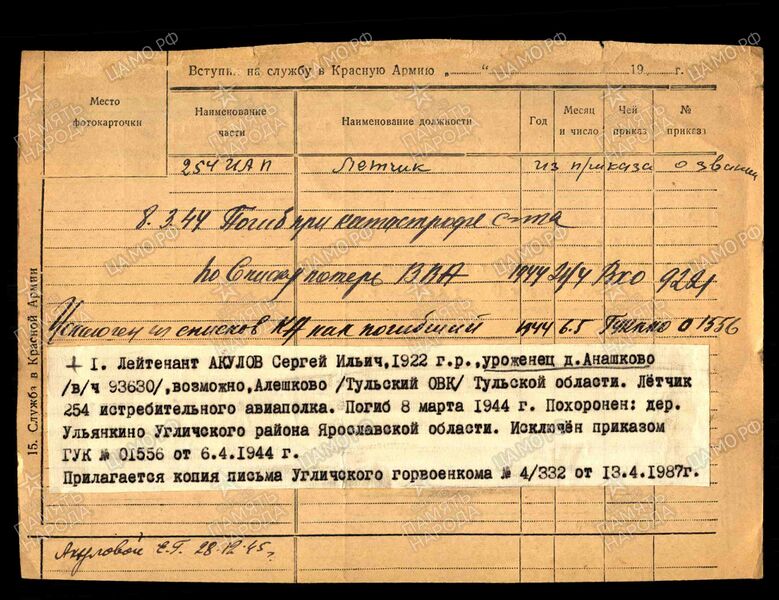 Вступил на службу в Красную Армию „ “ 19 г.
Место фотокарточки
Наименование части
Наименование должности
Год
Месяц и число
Чей приказ
№ приказа
254 ИАП Летчик из приказа о звании
8.3.44 Погиб при катастрофе с-та
по Списку потерь ВВА 1944 24/4 Вхо 9221
Исключен из списков КА как погибший 1944 6.5 Гукнко 01556
+ I. Лейтенант АКУЛОВ Сергей Ильич,1922 г.р.,уроженец д.Анашково
/в/ч 93630/,возможно,Алешково /Тульский ОВК/ Тульской области. Лётчик
254 истребительного авиаполка. Погиб 8 марта 1944 г. Похоронен: дер.
Ульянкино Угличского района Ярославской области. Исключён приказом
ГУК № 01556 от 6.4.1944 г.
Прилагается копия письма Угличского горвоенкома № 4/332 от 13.4.1987г.
15. Служба в Красной Армии
Акуловой Е.Г. 28.12.45г.
ЦАМО.РФ
ПАМЯТЬ НАРОДА